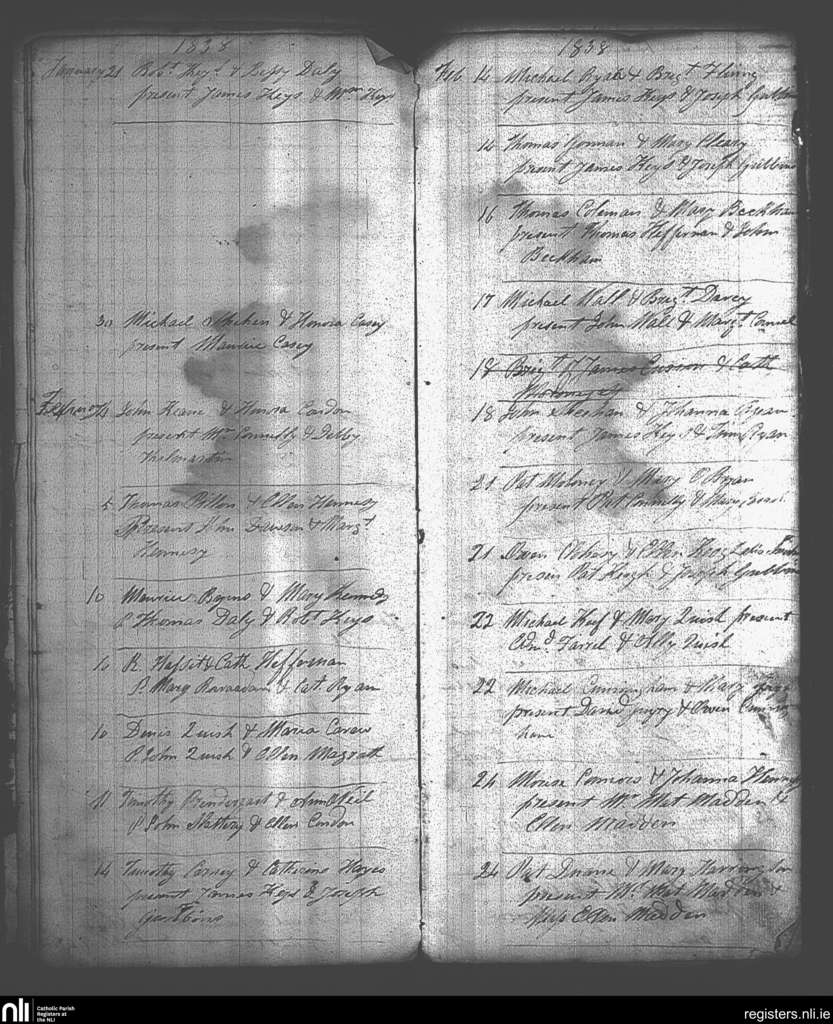 1838
January 21 Robt Keys & Bessy Daly
present James Keys & Wm Keys
30 Michael Meehen & Honora Casey
present Maurice Casey
John Keane & Honora Condon
present Mr Connelly & Debby
5 Thomas Dillon & Ellen Hennesy
Present John Dawson & Margt
Hennesy
10 Maurice Byrns & Mary Kennedy
P Thomas Daly & Robt Keys
10 R. & Cath Heffernan
P. Mary & Cat. Ryan
10 Denis Quish & Maria Carew
P. John Quish & Ellen Magrath
11 Timothy Prendergast & Ann O Neil
P John Slattery & Ellen Condon
14 Timothy Carney & Catherine Hayes
present James Keys & Joseph
Gubbins
1838
Feb 14 Michael Ryan & Brigt
present James Keys & Joseph Gubbins
14 Thomas Gorman & Mary Cleary
present James Keys & Joseph Gubbins
16 Thomas Coleman & Mary Beckham
present Thomas Heffernan & John
Beckham
17 Michael Wall & Brigt Darcy
present John Wall & Margt
18 Brigt of James & Cath
18 John Meehan & Johanna Ryan
present James Keys & Tim Ryan
21 Pat Moloney & Mary O Ryan
present Pat Connelly & Mary
21 Owen & Ellen Keog
presen Pat Keogh & Joseph Gubbins
22 Michael Keef & Mary Quish present
Edmd Farrel & Olly Quish
22 Michael Cunningham & Mary
present & Owen Cunning
ham
24 Connors & Johanna Hennesy
present Mr Mat Madden &
Ellen Madden
24 Pat Duane & Mary Harrington
present Mr Mat Madden &
Miss Ellen Madden
nli Catholic Parish
Registers at
the NLI
registers.nli.ie